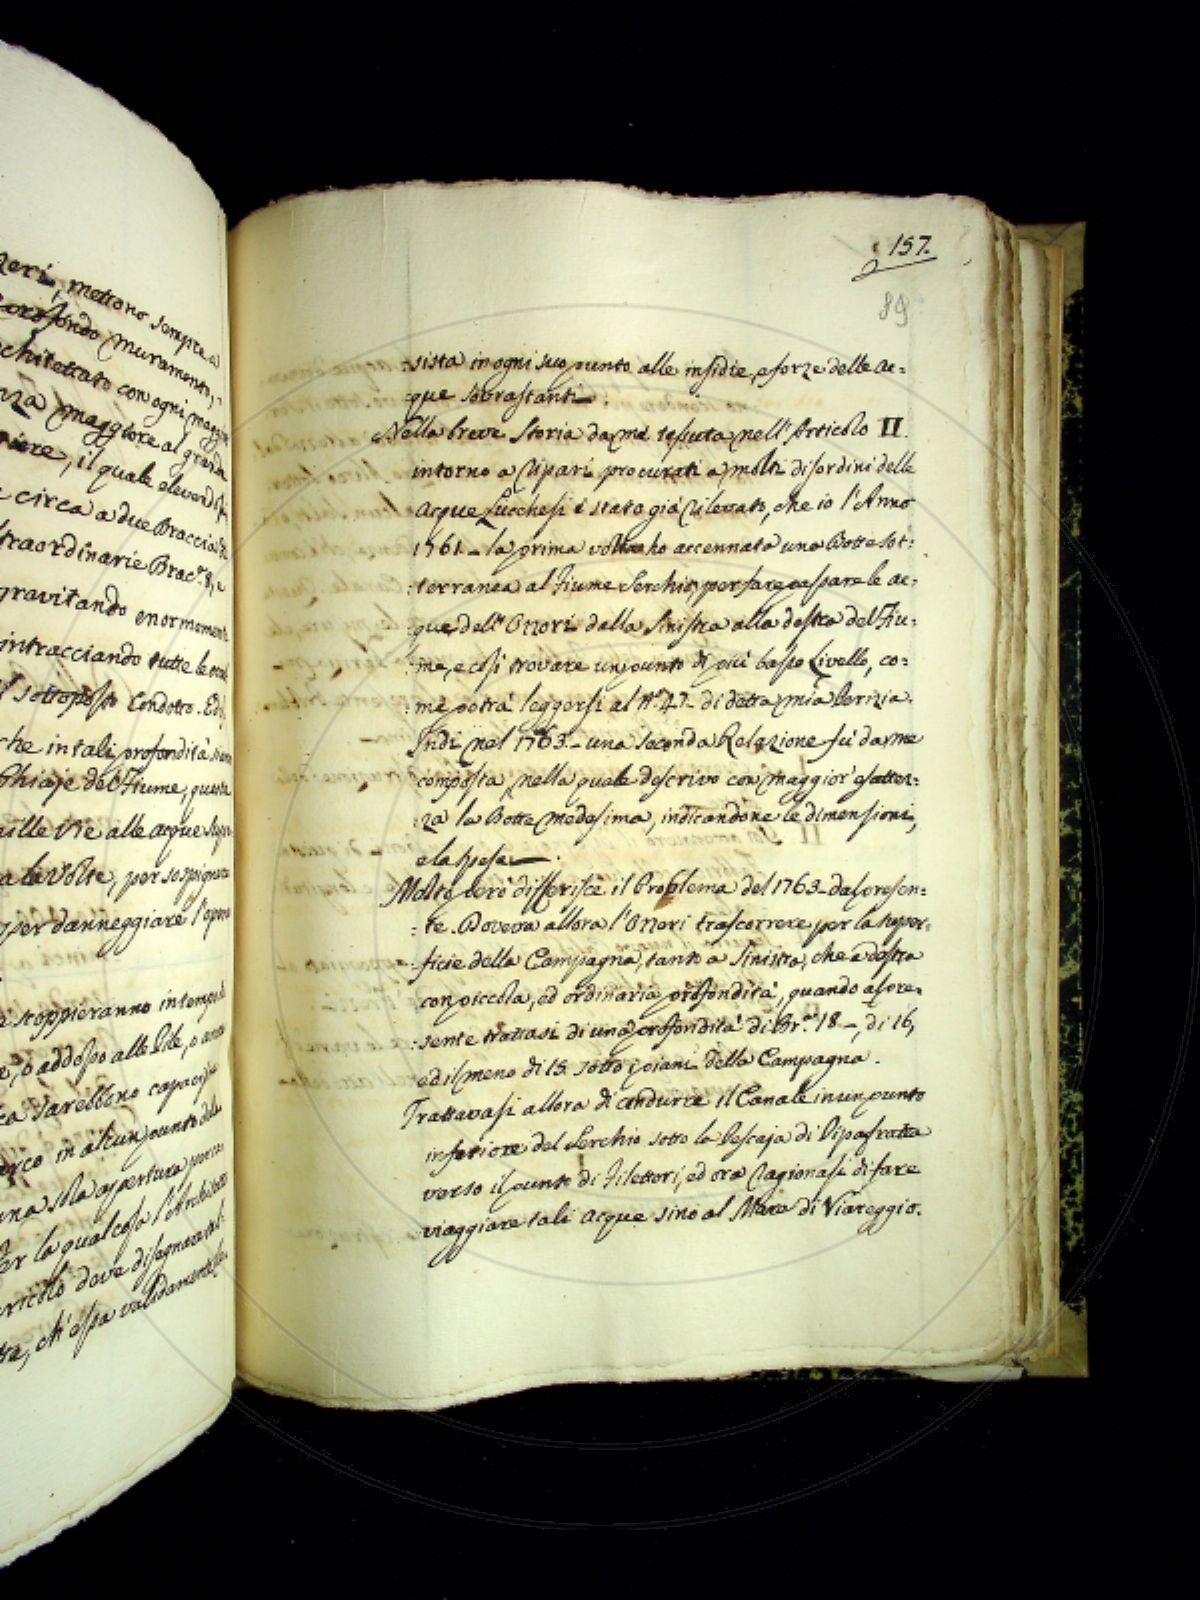 zeri, mettono sempre a
profondo muramento,
chitettato con ogni maggior
nza maggiore al grande
piere, il quale elevandosi
e circa a due Braccia
straordinarie Brac.ª 8, e
gravitando enormemente
intracciando tutte le
sottoposto Condotto. Ed
che in tali profondità
Ghiaje del Fiume, queste
mille vie alle acque
a la Volta, per sospignere
per danneggiare l'opera
scoppieranno in tempi
e, o addosso alle Pile, o
ca sarebbono capaci
arco in alcun punto della
una sola apertura
Per la qual cosa l'Architetto
pericolo deve disegnare
ch'essa validamente
157.
89
:sista in ogni suo punto alle insidie, e forze delle ac=
que sovrastanti.
Nella breve Storia da me tessuta nell'Articolo II.
intorno a Ripari procurati a molti disordini delle
acque Lucchesi è stato già rilevato, che io l'Anno
1761 – la prima volta ho accennata una Botte sot:
:terranea al Fiume Serchio, per fare passare le ac:
:que dell'Ozzori dalla sinistra alla destra del Fiu:
:me, e così trovare un punto di più basso Livello, co:
:me potrà leggersi al N.º 47 – di detta mia Perizia.
Indi nel 1763 – una seconda Relazione fù da me
composta, nella quale descrivo con maggior esattez:
:za la Botte medesima, indicandone le dimensioni,
e la spesa.
Molto però differisce il Problema del 1763 – dal presen:
:te. Doveva allora l'Ozzori trascorrere per la super:
:ficie della Campagna, tanto a Sinistra, che a destra
con piccola, ed ordinaria profondità, quando al pre:
:sente trattasi di una profondità di Br.ª 18 –, di 16,
ed il meno di 15. sotto i piani della Campagna.
Trattavasi allora di condurre il Canale in un punto
inferiore del Serchio sotto la Pescaja di Ripafratta
verso il punto di Filettori, ed ora ragionasi di fare
viaggiare tali acque sino al Mare di Viareggio.